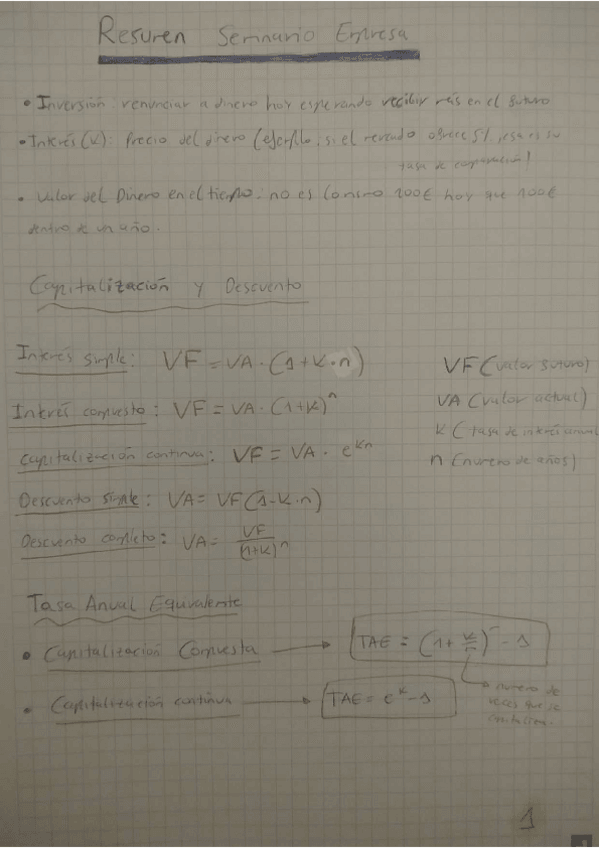 Resumen Seminario Empresa
• Inversión: renunciar a dinero hoy esperando recibir más en el futuro
• Interés (K): Precio del dinero (ejemplo, si el mercado ofrece 5%, esa es su
tasa de comparación)
• Valor del Dinero en el tiempo: no es lo mismo 100€ hoy que 100€
dentro de un año.
Capitalización y Descuento
Interés simple: VF = VA · (1+K·n)
VF (valor futuro)
Interés compuesto: VF = VA · (1+K)^n
VA (valor actual)
K (tasa de interés anual
Capitalización continua: VF = VA · e^Kn
n (número de años)
Descuento simple: VA = VF(1-K·n)
Descuento completo: VA = VF/(1+K)^n
Tasa Anual Equivalente
• Capitalización Compuesta → TAE = (1 + K/m)^m - 1
número de
veces que se
capitaliza.
• Capitalización continua → TAE = e^K - 1
1